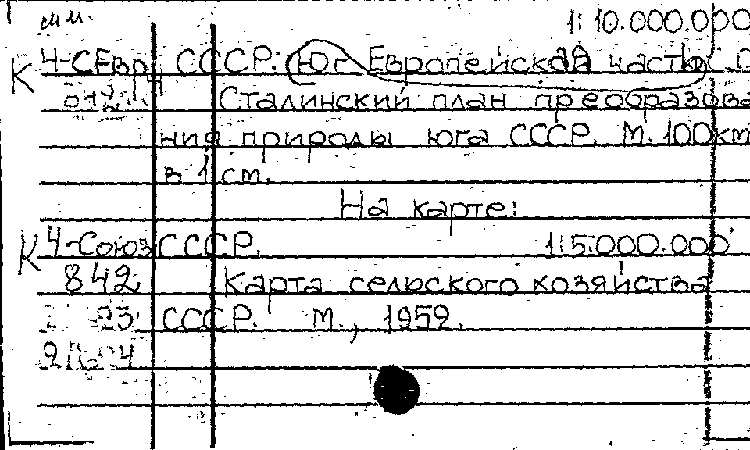 мм. 1:10.000.000
К 4-СЕвр СССР. Юг Европейской части С
Сталинский план преобразова
ния природы юга СССР. М. 100км
в 1 см.
На карте:
К 4-Союз СССР. 1:5.000.000
842 Карта сельского хозяйства
23 СССР. М., 1952.